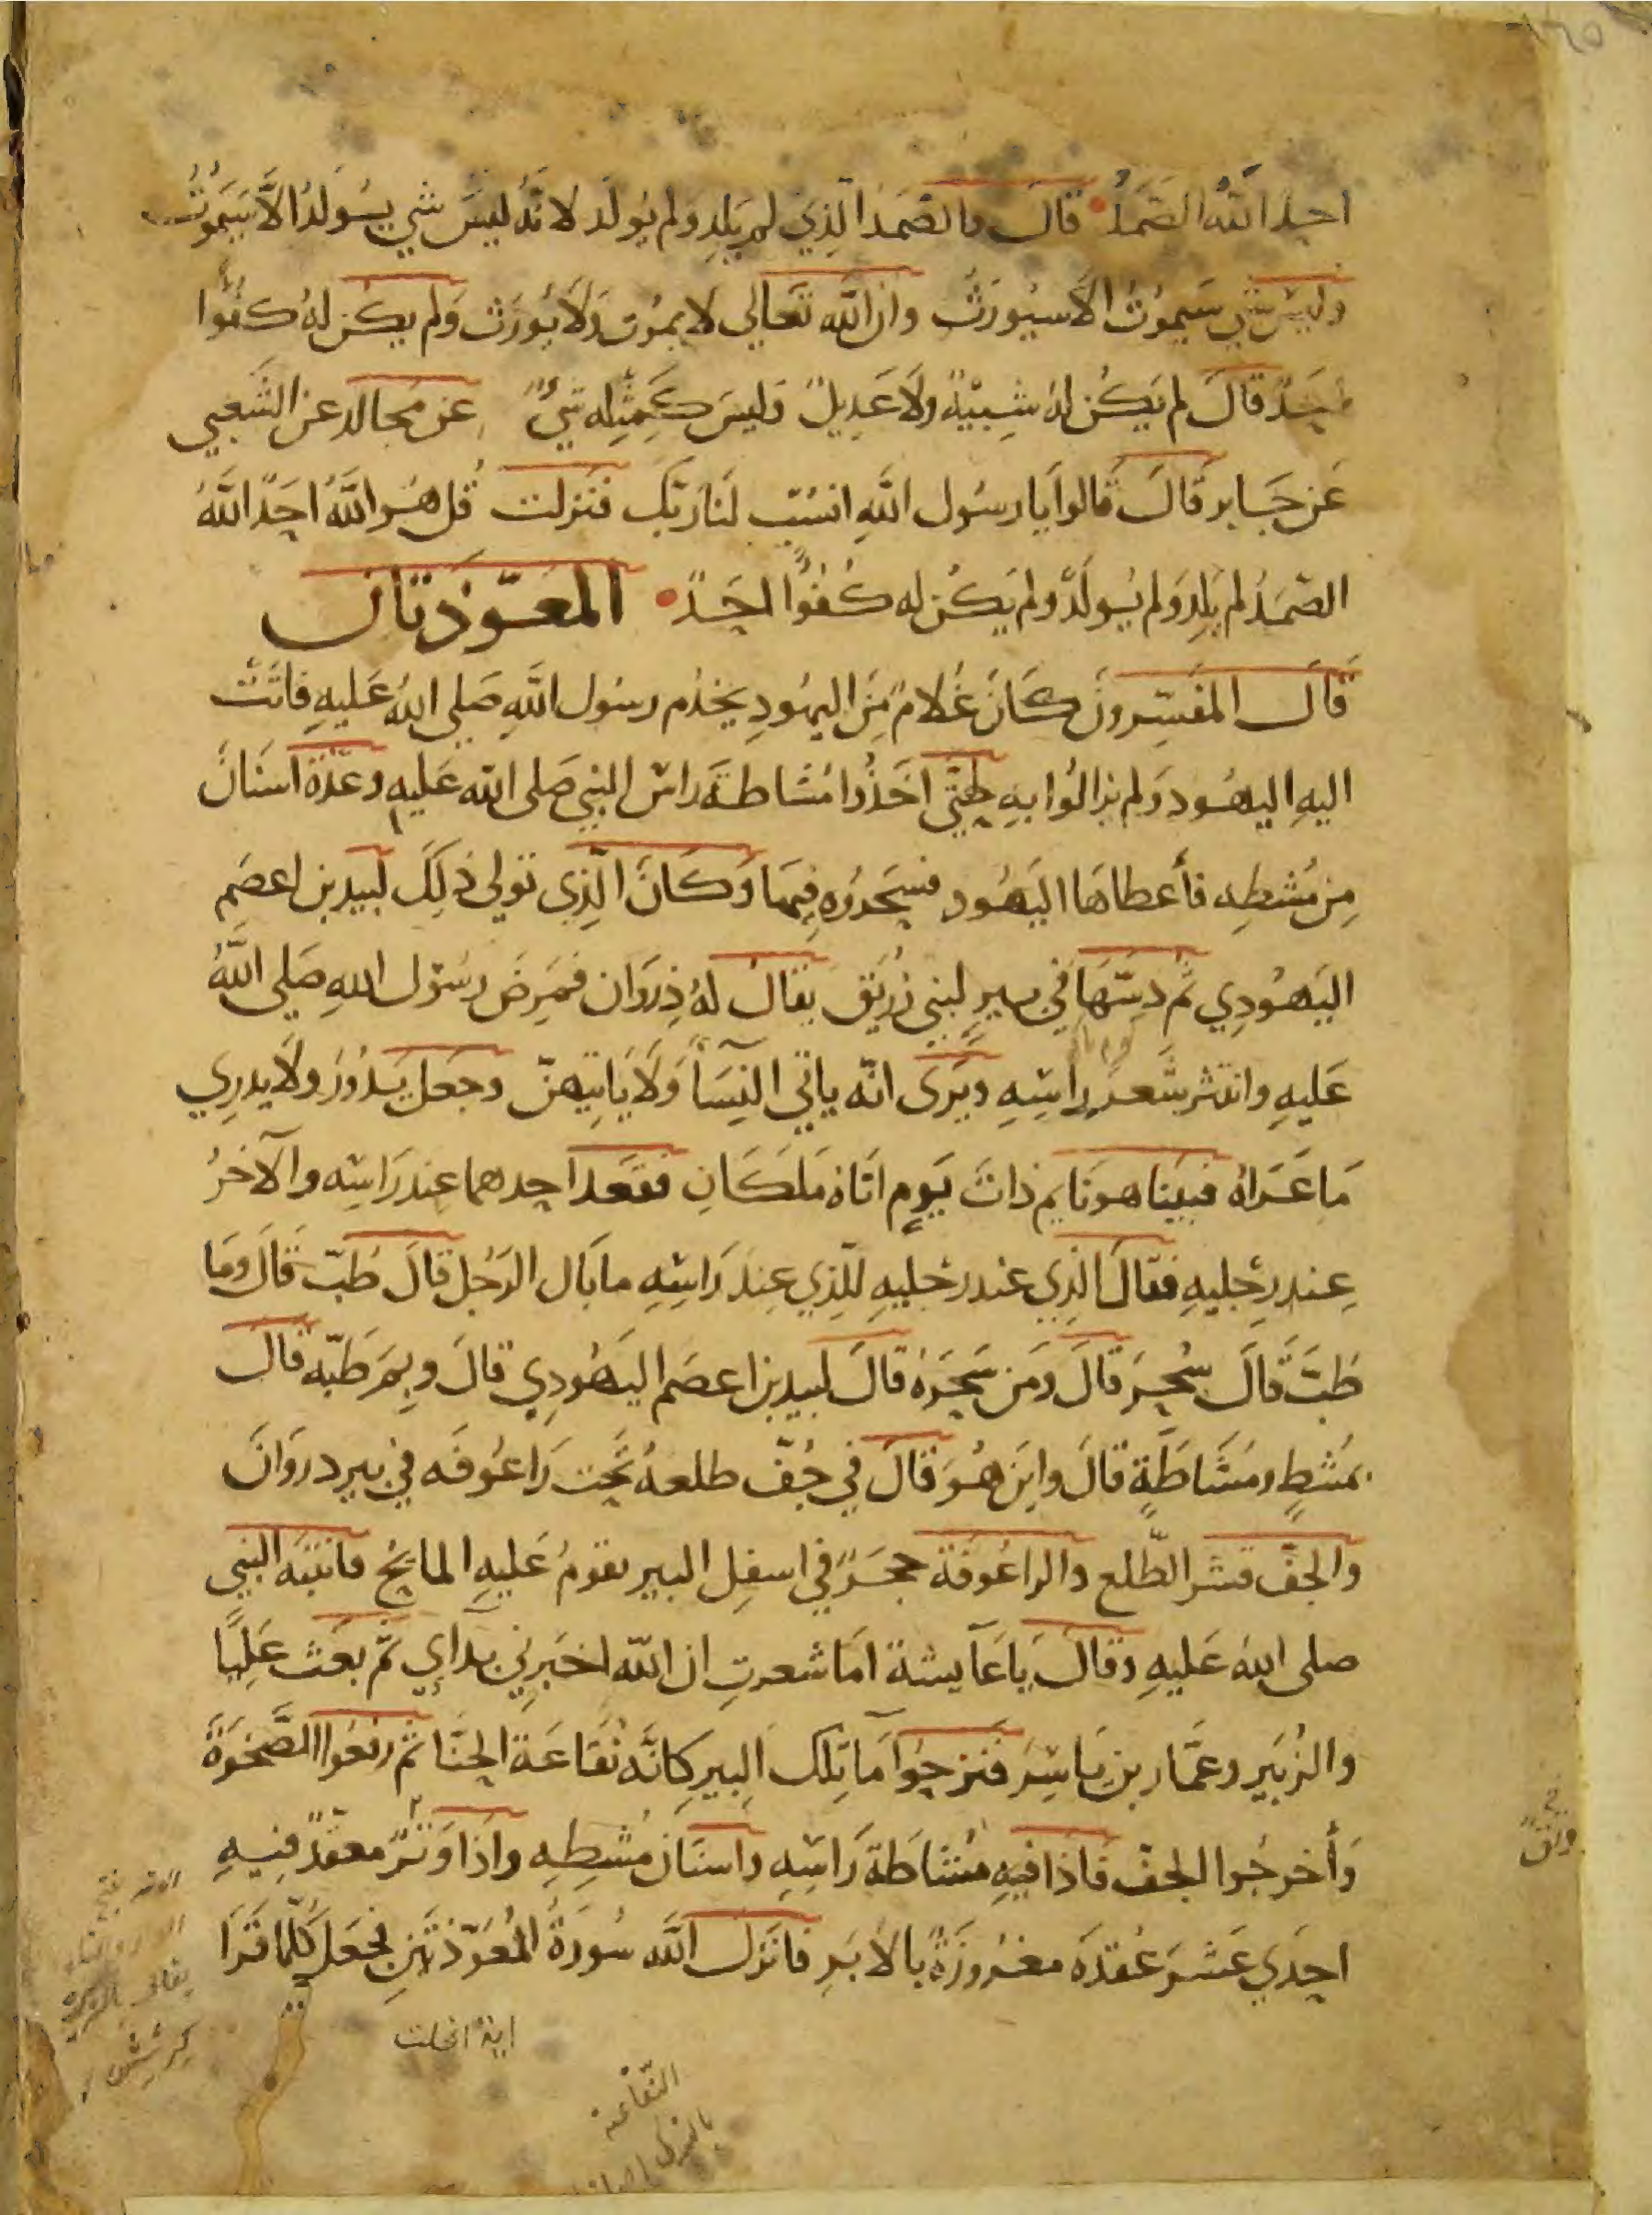 احد الله الصمد قال والصمد الذي لم يلد ولم يولد لانه ليس شي يسولد الا سيموت
وليس شي سيموت الا سيورث وان الله تعالي لا يموت ولا يورث ولم يكن له كفوا
احد قال لم يكن له شبيه ولا عديل وليس كمثله شيء عن مجالد عن الشعبي
عن جابر قال قالوا يا رسول الله انسب لنا ربك فنزلت قل هو الله احد الله
الصمد لم يلد ولم يولد ولم يكن له كفوا احد المعوذتان
قال المفسرون كان غلام من اليهود يخدم رسول الله صلى الله عليه فاتت
اليه اليهود ولم يزالوا به حتى اخذوا مشاطة راس النبي صلى الله عليه وعدة اسنان
من مشطه فأعطاها اليهود فسحروه فيها وكان الذي تولي ذلك لبيد بن اعصم
اليهودي ثم دسها في بير لبني زريق يقال له ذروان فمرض رسول الله صلى الله
عليه وانتثر شعر راسه ويرى انه ياتي النسآ ولا ياتيهن وجعل يدور ولا يدري
ما عراه فبينا هو نايم ذات يوم اتاه ملكان فقعد احدهما عند راسه والآخر
عند رجليه فقال الذي عند رجليه للذي عند راسه ما بال الرجل قال طب قال وما
طب قال سحر قال ومن سحره قال لبيد بن اعصم اليهودي قال وبم طبه قال
بمشط ومشاطة قال واين هو قال في جف طلعة تحت راعوفه في بير دروان
والجف قشر الطلع والراعوفة حجر في اسفل البير يقوم عليه المايح فانتبه النبي
صلى الله عليه وقال يا عآيشة اما شعرت ان الله اخبرني بدآي ثم بعث عليا
والزبير وعمار بن ياسر فنزحوا مآ تلك البير كانه نقاعة الحنا ثم رفعوا الصخرة
وأخرجوا الجف فاذا فيه مشاطة راسه واسنان مشطه واذا وتر معقد فيه
احدي عشر عقدة مغروزة بالابر فانزل الله سورة المعوذتين فجعل كلما قرا
اية انحلت
النقاعة